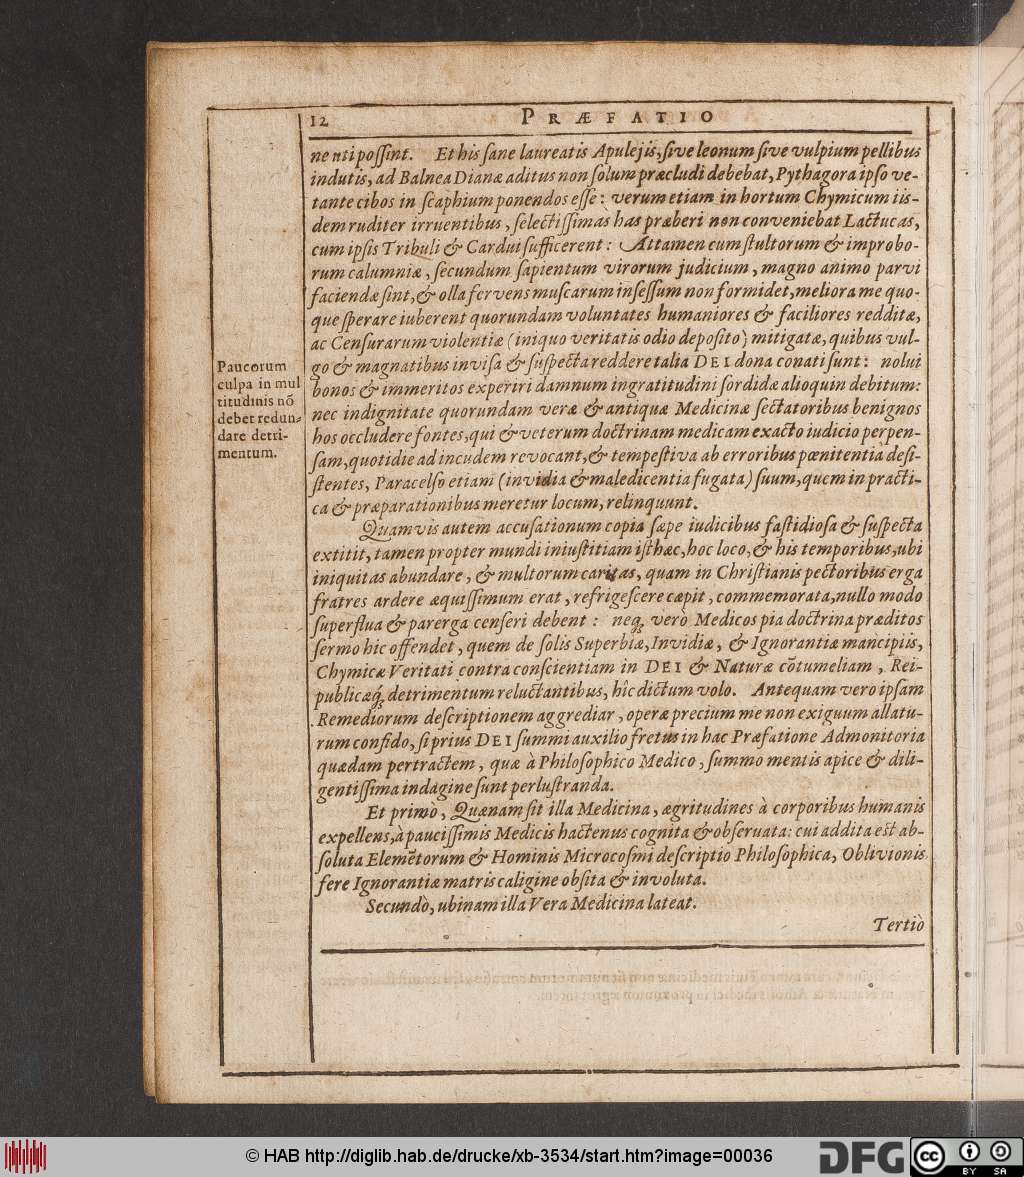 12 PRÆFATIO
ne nti poſſint. Et his ſane laureatis Apulejis, ſive leonum ſive vulpium pellibus
indutis, ad Balnea Dianæ aditus non ſolum præcludi debebat, Pythagora ipſo ve-
tante cibos in ſcaphium ponendos eſſe: verum etiam in hortum Chymicum iis-
dem ruditer irruentibus, ſelectiſſimas has præberi non conveniebat Lactucas,
cum ipſis Tribuli & Cardui ſufficerent: Attamen cum ſtultorum & improbo-
rum calumniæ, ſecundum ſapientum virorum judicium, magno animo parvi
faciendæ ſint, & olla fervens muſcarum inſeſſum non formidet, meliora me quo-
que ſperare iuberent quorundam voluntates humaniores & faciliores redditæ,
ac Cenſurarum violentiæ (iniquo veritatis odio depoſito) mitigatæ, quibus vul-
go & magnatibus inviſa & ſuſpecta reddere talia DEI dona conati ſunt: nolui
bonos & immeritos experiri damnum ingratitudini ſordidæ alioquin debitum:
nec indignitate quorundam veræ & antiquæ Medicinæ ſectatoribus benignos
hos occludere fontes, qui & veterum doctrinam medicam exacto iudicio perpen-
ſam, quotidie ad incudem revocant, & tempeſtiva ab erroribus pœnitentia deſi-
ſtentes, Paracelſo etiam (invidia & maledicentia fugata) ſuum, quem in practi-
ca & præparationibus meretur locum, relinquunt.
Paucorum
culpa in mul
titudinis nõ
debet redun-
dare detri-
mentum.
Quamvis autem accuſationum copia ſæpe iudicibus faſtidioſa & ſuſpecta
extitit, tamen propter mundi iniuſtitiam iſthæc, hoc loco, & his temporibus, ubi
iniquitas abundare, & multorum caritas, quam in Chriſtianis pectoribus erga
fratres ardere æquiſſimum erat, refrigeſcere cæpit, commemorata, nullo modo
ſuperflua & parerga cenſeri debent: neq; vero Medicos pia doctrina præditos
ſermo hic offendet, quem de ſolis Superbiæ, Invidiæ, & Ignorantiæ mancipiis,
Chymicæ Veritati contra conſcientiam in DEI & Naturæ cõtumeliam, Rei-
publicæq; detrimentum reluctantibus, hîc dictum volo. Antequam vero ipſam
Remediorum deſcriptionem aggrediar, operæ precium me non exiguum allatu-
rum confido, ſi prius DEI ſummi auxilio fretus in hac Præfatione Admonitoria
quædam pertractem, quæ à Philoſophico Medico, ſummo mentis apice & dili-
gentiſſima indagine ſunt perluſtranda.
Et primò, Quænam ſit illa Medicina, ægritudines à corporibus humanis
expellens, à pauciſſimis Medicis hactenus cognita & obſervata: cui addita est ab-
ſoluta Elemētorum & Hominis Microcoſmi deſcriptio Philoſophica, Oblivionis
fere Ignorantiæ matris caligine obſita & involuta.
Secundò, ubinam illa Vera Medicina lateat.
Tertiò
© HAB http://diglib.hab.de/drucke/xb-3534/start.htm?image=00036
DFG
cc BY SA